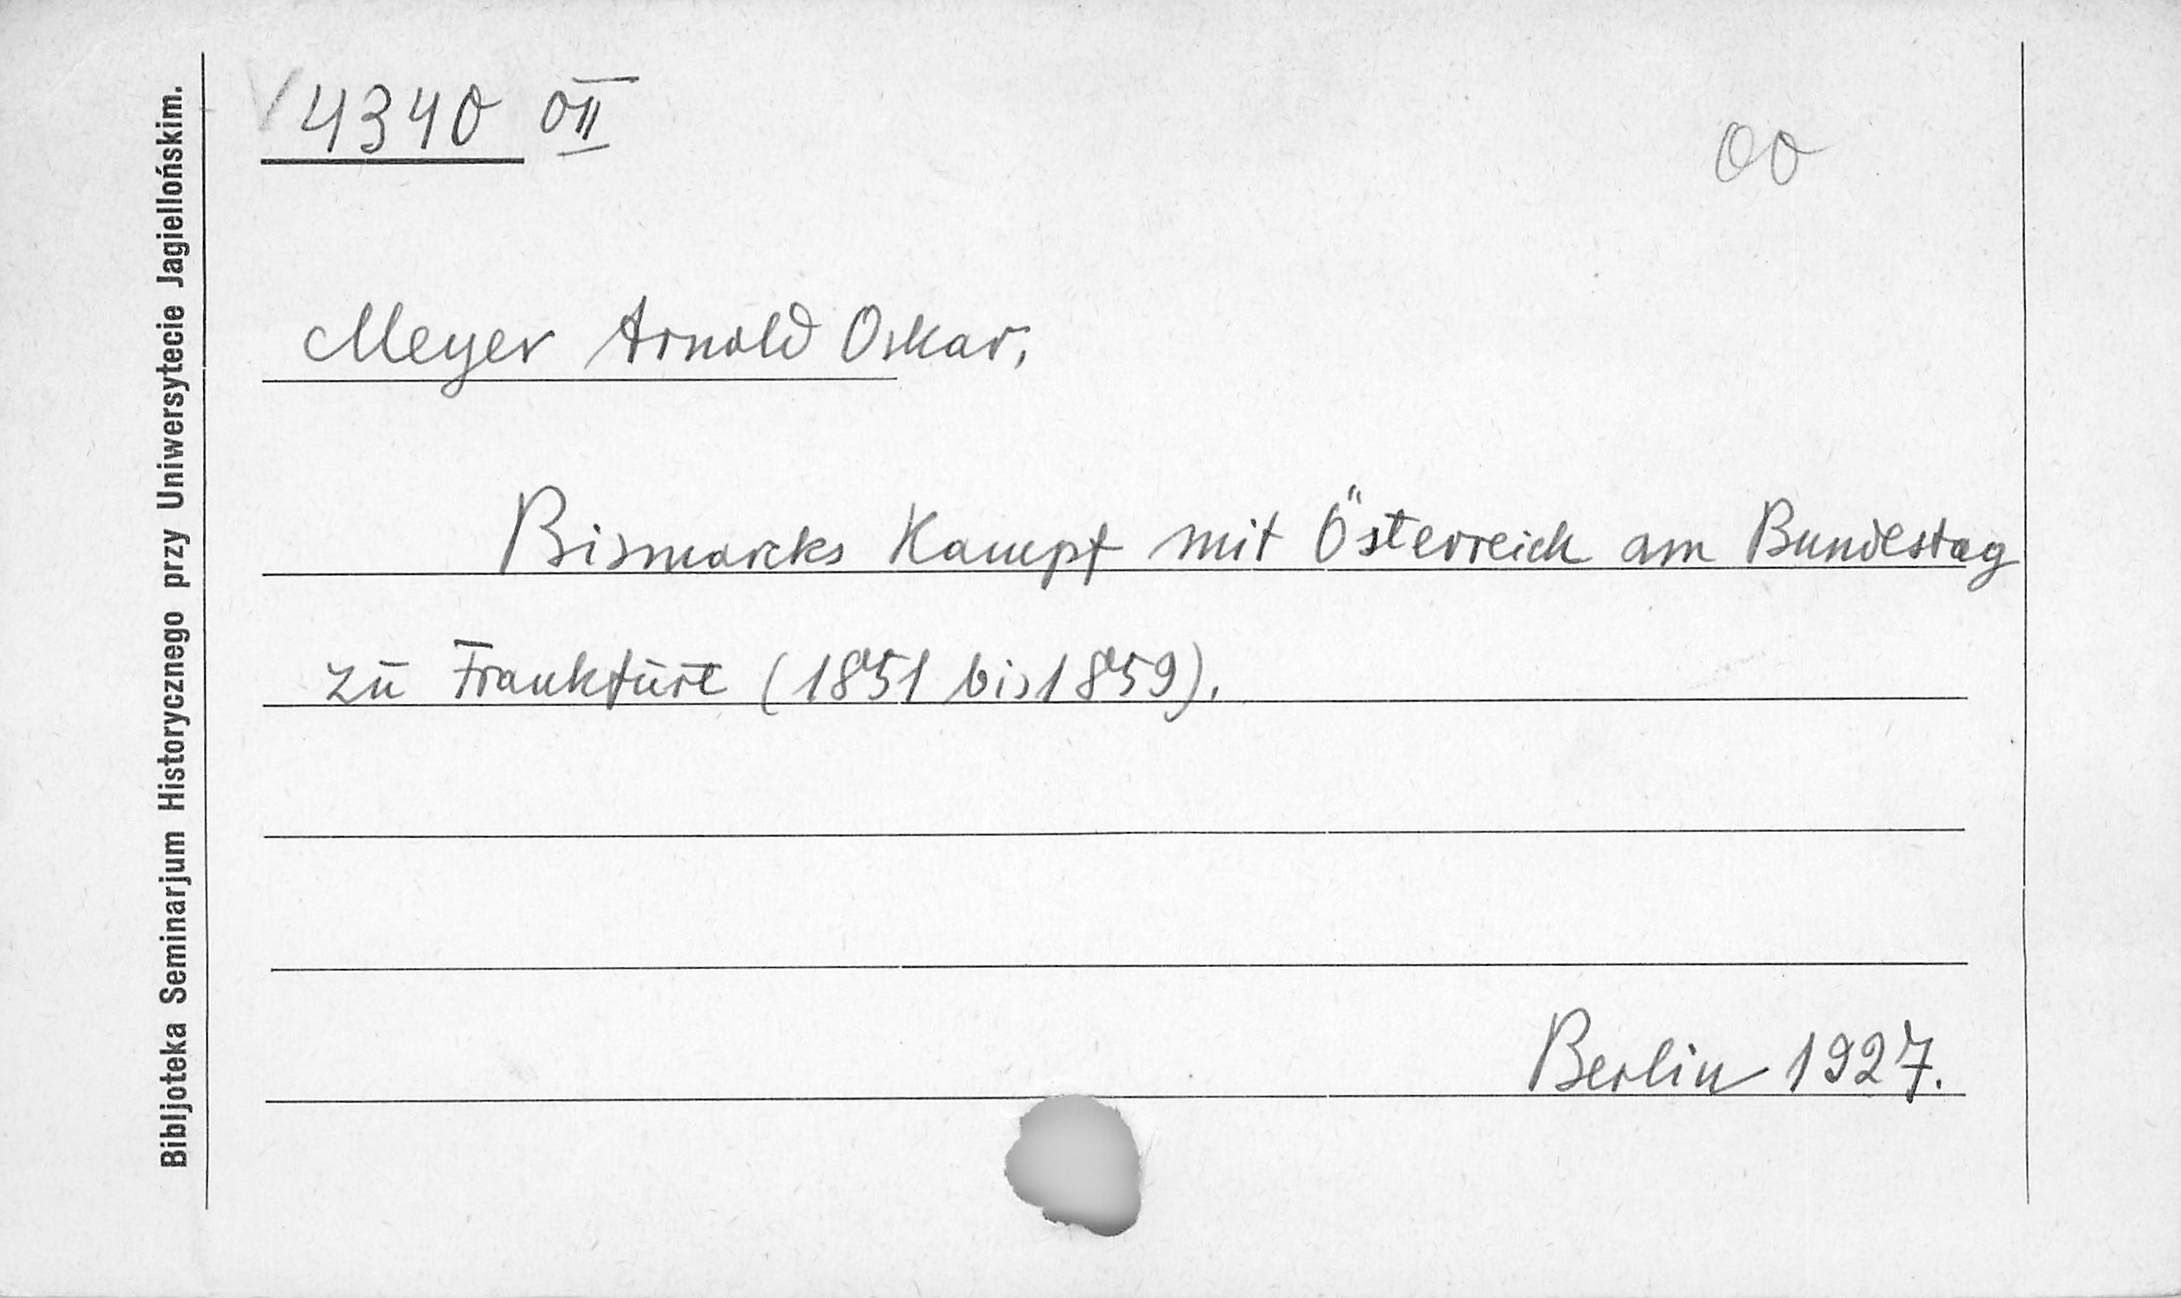 Bibljoteka Seminarjum Historycznego przy Uniwersytecie Jagiellońskim.
4340 OII
00
Meyer Arnold Oskar,
Bismarcks Kampf mit Österreich am Bundestag
zu Frankfurt (1851 bis 1859).
Berlin 1927.